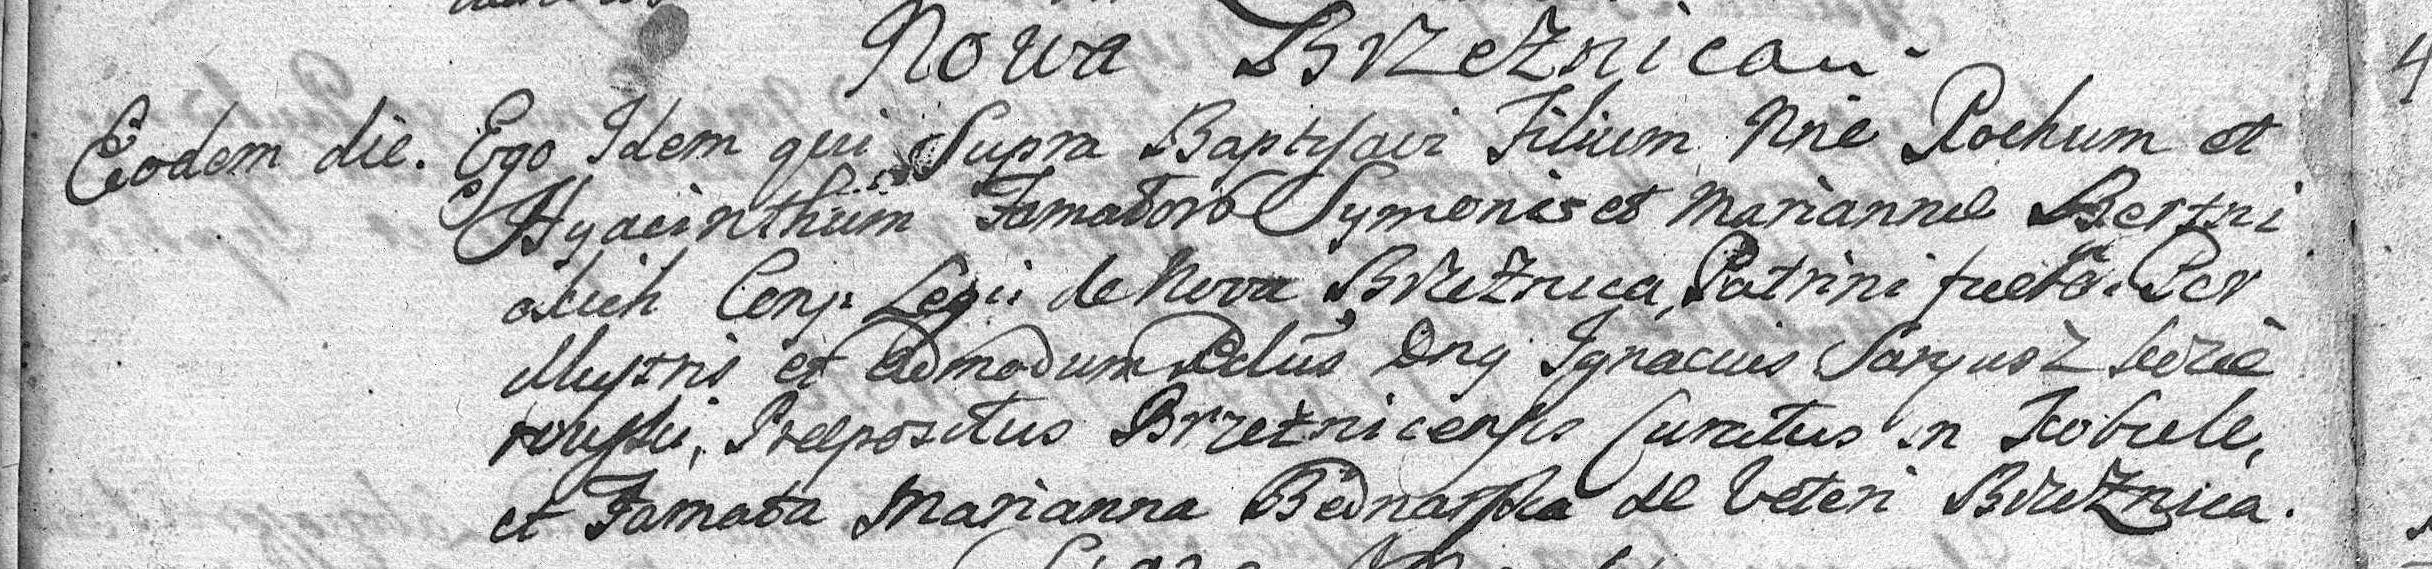 Nowa Brzeznica
Eodem die. Ego Idem qui Supra Baptysavi Filium Nne Rochum et
Hyacinthum Famator Symonis et Mariannae Bertni
akich Conj: Legi: de Nova Brzeżnica, Patrini fuer. Per
Illustris et Admodum Rdus Dnꝯ Ignacius Saryusz
Praepositus Brzeżnicensis Curatus in Kobiele,
et Famata Marianna Bednarska de Veteri Brzeżnica.